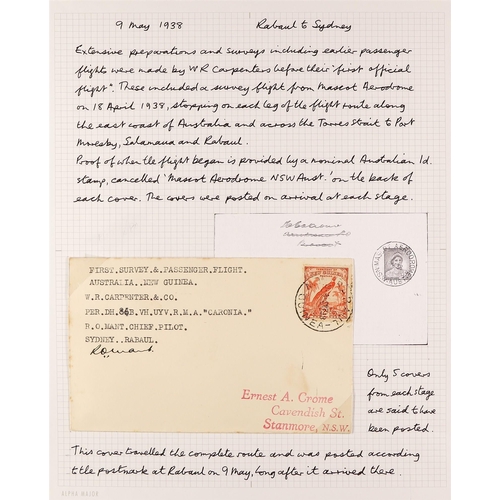 9 May 1938 Rabaul to Sydney
Extensive preparations and surveys including earlier passenger
flights were made by W R Carpenters before their "first official
flight". These included a survey flight from Mascot Aerodrome
on 18 April 1938, stopping on each leg of the flight route along
the east coast of Australia and across the Torres Strait to Port
Moresby, Salamaua and Rabaul.
Proof of when the flight began is provided by a nominal Australian 1d.
stamp, cancelled 'Mascot Aerodrome NSW Aust.' on the back of
each cover. The covers were posted on arrival at each stage.
FIRST.SURVEY.&.PASSENGER.FLIGHT.
AUSTRALIA..NEW GUINEA.
W.R.CARPENTER.&.CO.
PER.DH.86B.VH.UYV.R.M.A."CARONIA."
R.O.MANT.CHIEF.PILOT.
SYDNEY..RABAUL.
ROMant
Ernest A. Crome
Cavendish St.
Stanmore, N.S.W.
Only 5 covers
from each stage
are said to have
been posted.
This cover travelled the complete route and was posted according
to the postmark at Rabaul on 9 May, long after it arrived there.